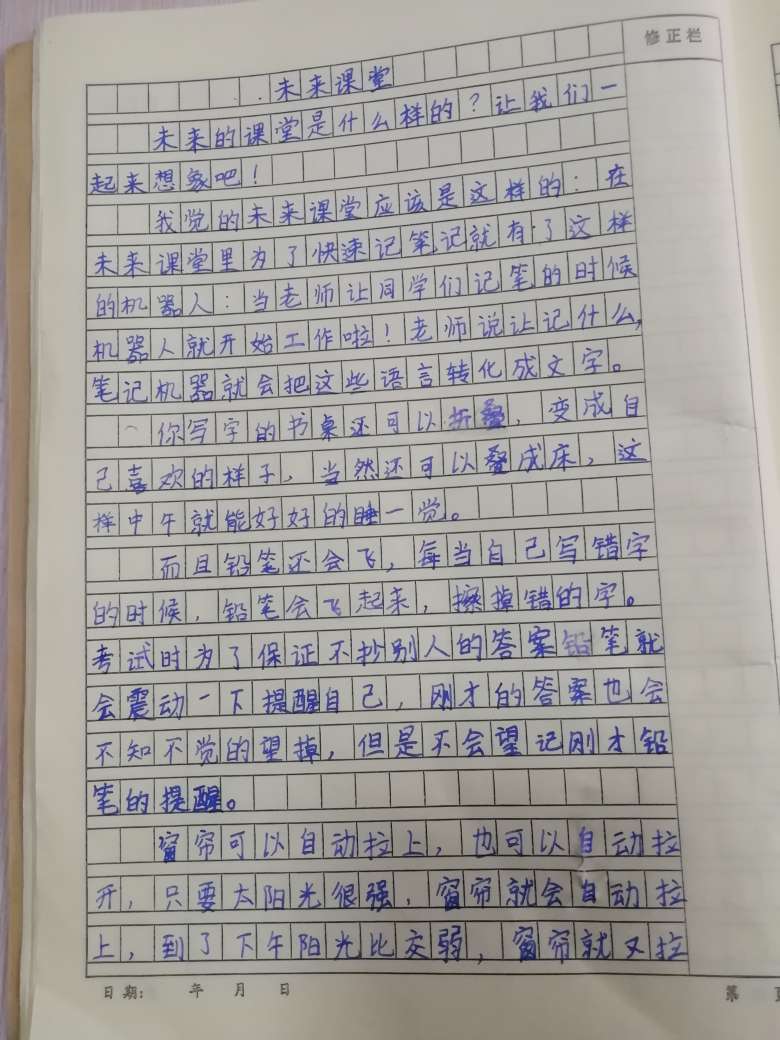 修正栏
未来课堂
未来的课堂是什么样的？让我们一
起来想象吧！
我觉的未来课堂应该是这样的：在
未来课堂里为了快速记笔记就有了这样
的机器人：当老师让同学们记笔的时候
机器人就开始工作啦！老师说让记什么，
笔记机器就会把这些语言转化成文字。
你写字的书桌还可以折叠，变成自
己喜欢的样子，当然还可以叠成床，这
样中午就能好好的睡一觉。
而且铅笔还会飞，每当自己写错字
的时候，铅笔会飞起来，擦掉错的字。
考试时为了保证不抄别人的答案铅笔就
会震动一下提醒自己，刚才的答案也会
不知不觉的望掉，但是不会望记刚才铅
笔的提醒。
窗帘可以自动拉上，也可以自动拉
开，只要太阳光很强，窗帘就会自动拉
上，到了下午阳光比交弱，窗帘就又拉
日期： 年 月 日
第 页